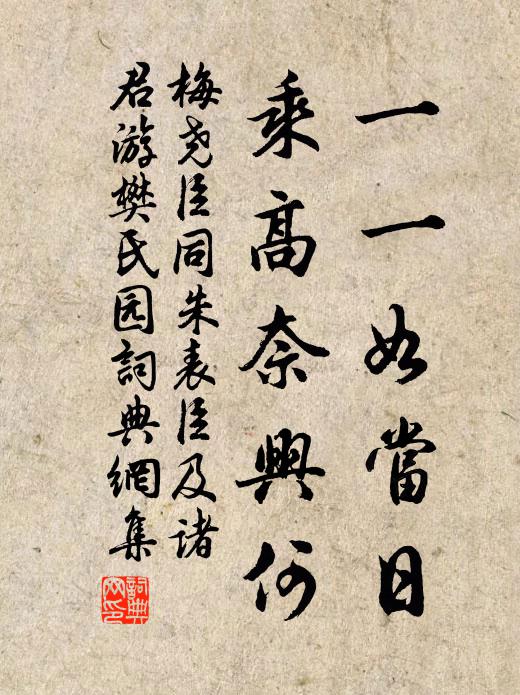 一一如當日
乘高奈興何
梅尧臣同朱表臣及诸
君游樊氏园詞典網集
詞典網印